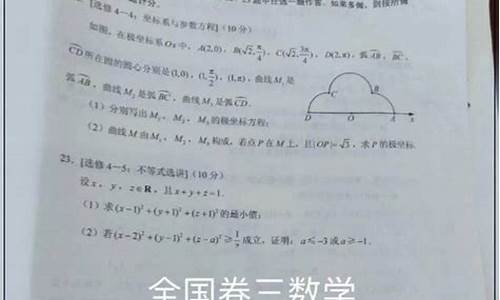 [选修4-4:坐标系与参数方程](10分)
如图,在极坐标系Ox中,A(2,0),B(√2,π/4),C(√2,3π/4),D(2,π),弧AB,BC,
CD所在圆的圆心分别是(1,0),(1,π/2),(1,π),曲线M₁是
弧AB,曲线M₂是弧BC,曲线M₃是弧CD.
(1)分别写出M₁,M₂,M₃的极坐标方程;
(2)曲线M由M₁,M₂,M₃构成,若点P在M上,且|OP|=√3,求P的极坐标.
C B
D O A x
23.[选修4-5:不等式选讲](10分)
设x,y,z∈R,且x+y+z=1.
(1)求(x-1)²+(y+1)²+(z+1)²的最小值;
(2)若(x-2)²+(y-1)²+(z-a)²≥1/3成立,证明:a≤-3或a≥-1.
全国卷三数学